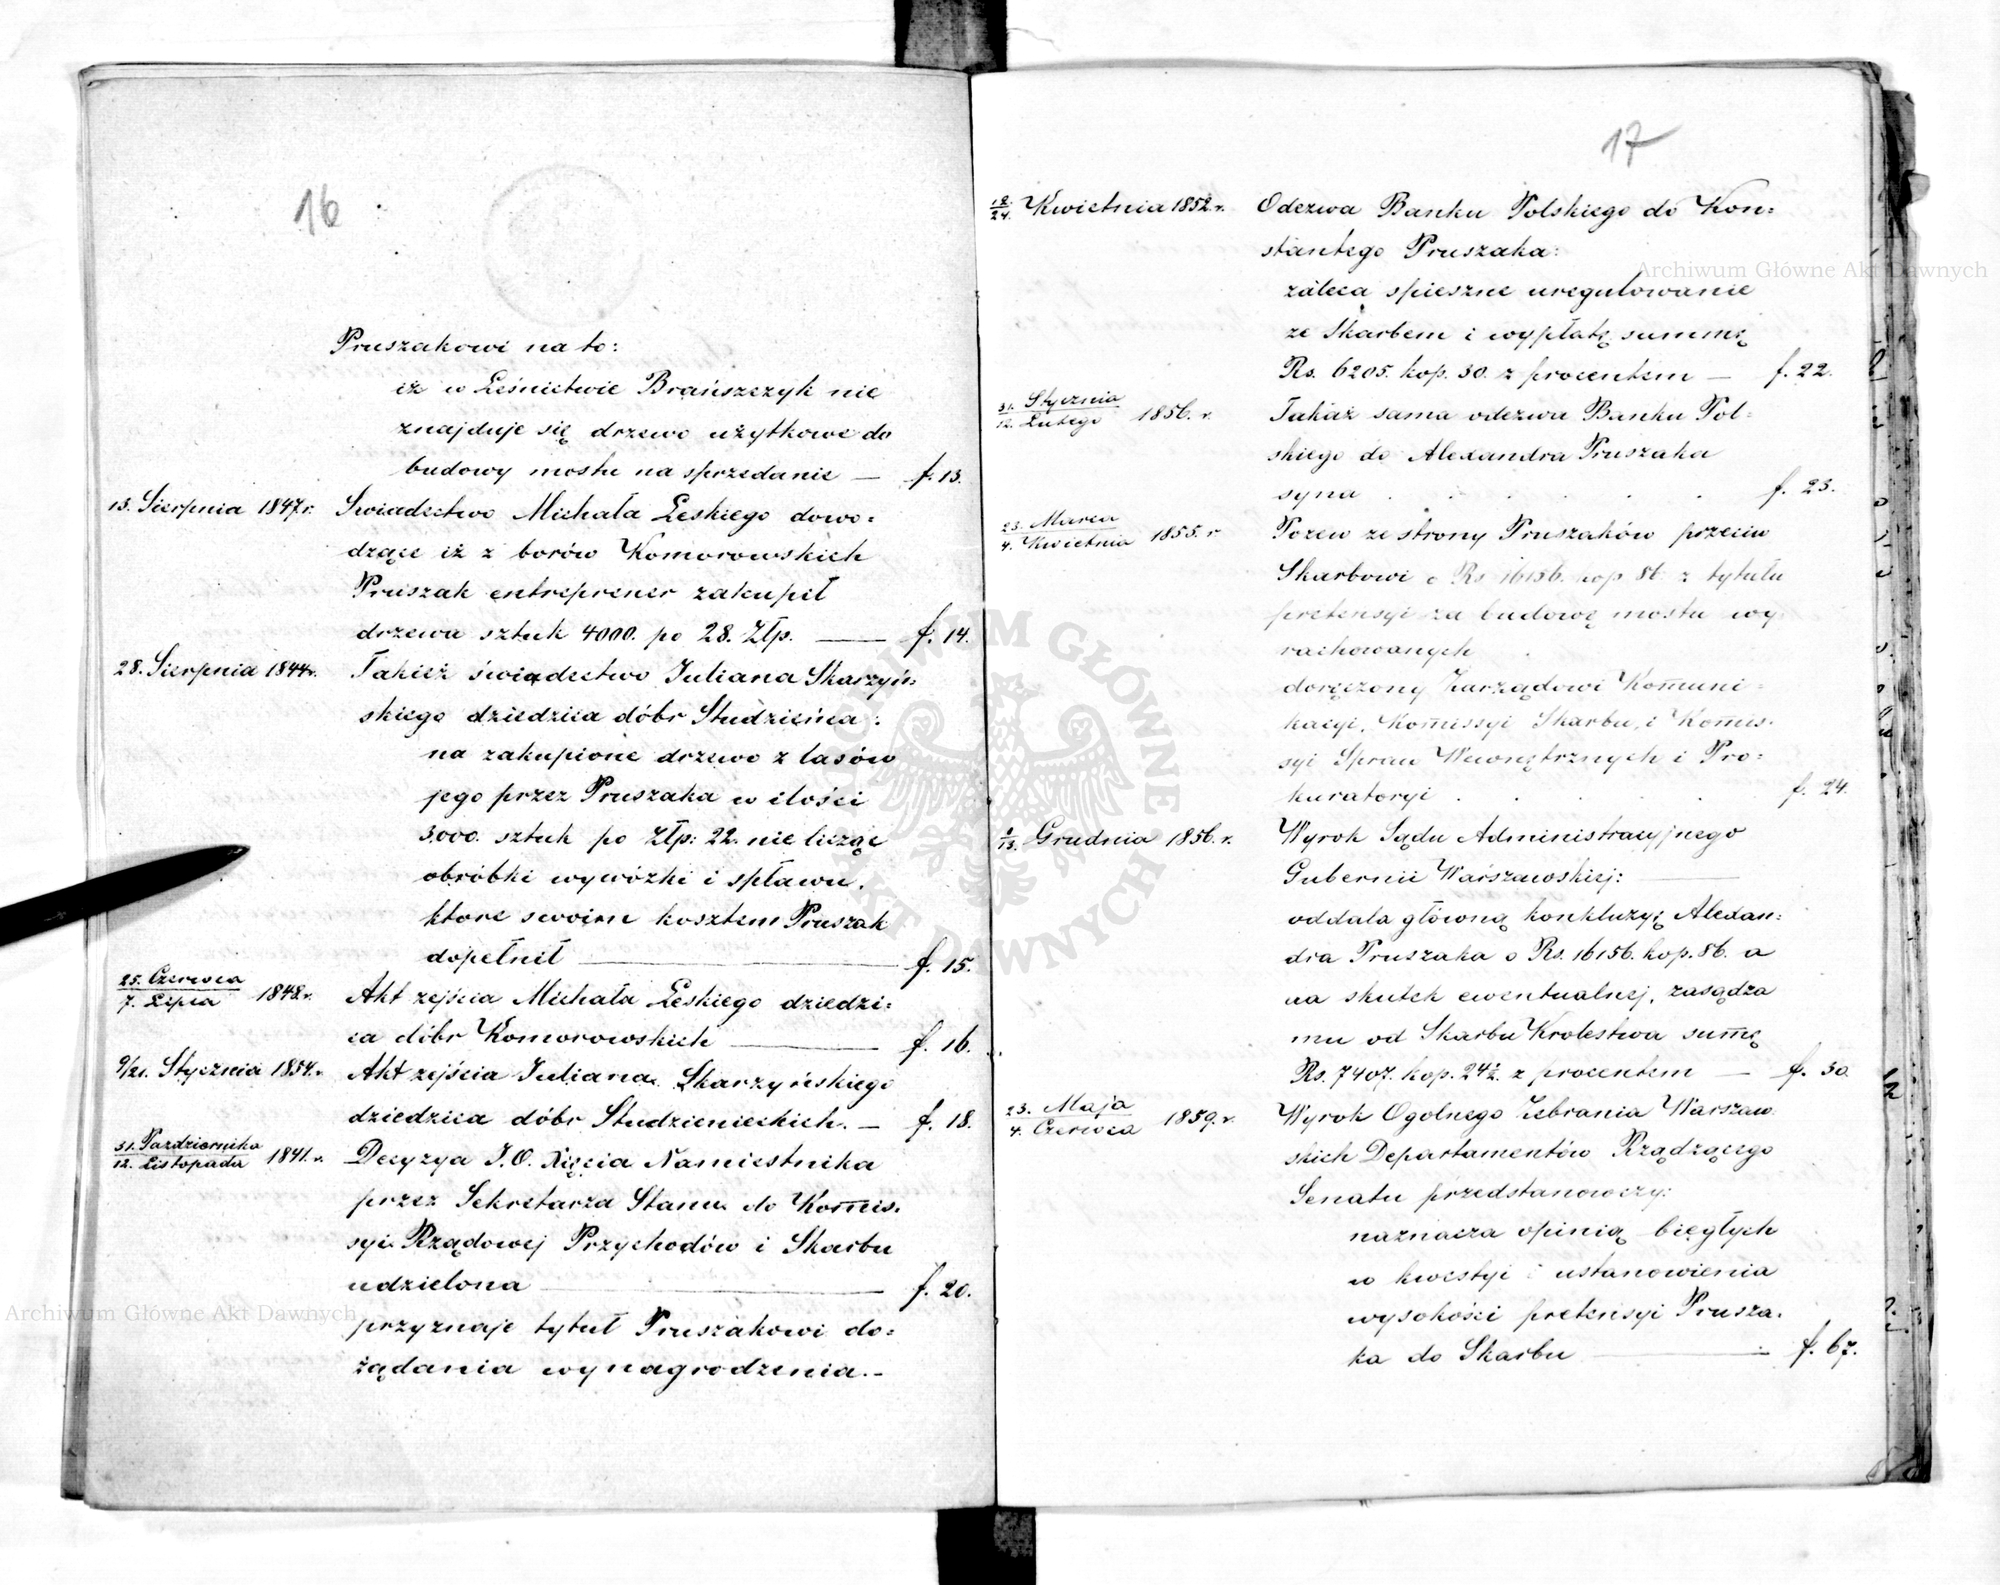 16
Pruszakowi na to:
iż w Leśnictwie Brańszczyk nie
znajduje się drzewo użytkowe do
budowy mostu na sprzedanie — f. 13.
13. Sierpnia 1847 r. Swiadectwo Michała Leskiego dowo=
dzące iż z borów Komorowskich
Pruszak entreprener zakupił
drzewa sztuk 4000. po 28. Złp. — f. 14.
28. Sierpnia 1844 r. Takież świadectwo Juliana Skarzyń=
skiego dziedzica dóbr Studzieńca:
na zakupione drzewo z lasów
jego przez Pruszaka w ilości
3000. sztuk po Złp: 22. nie licząc
obróbki wywózki i spławu,
ktore swoim kosztem Pruszak
dopełnił — f. 15.
25. Czerwca / 7. Lipca 1848 r. Akt zejścia Michała Leskiego dziedzi=
ca dóbr Komorowskich — f. 16.
9/21. Stycznia 1854. r. Akt zejścia Juliana Skarzyńskiego
dziedzica dóbr Studzienieckich. — f. 18.
31. Pazdziernika / 12. Listopada 1841. r. Decyzya J. O. Xięcia Namiestnika
przez Sekretarza Stanu do Kom̄is=
syi Rządowej Przychodów i Skarbu
udzielona — f. 20.
przyznaje tytuł Pruszakowi do=
żądania wynagrodzenia.-
17
12/24. Kwietnia 1852. r. Odezwa Banku Polskiego do Kon=
stantego Pruszaka:
zaleca spieszne uregulowanie
ze Skarbem i wypłatę summę
Rs. 6205. kop. 30. z procentem — f. 22.
31. Stycznia / 12. Lutego 1856. r. Takaż sama odezwa Banku Pol=
skiego do Alexandra Pruszaka
syna . . . . . f. 23.
23. Marca / 4. Kwietnia 1855. r Pozew ze strony Pruszaków przeciw
Skarbowi o Rs 16156. kop 86. z tytułu
pretensyi za budowę mostu wy
rachowanych .
doręczony Zarządowi Kom̄uni=
kacyi, Kom̄issyi Skarbu, i Kom̄is=
syi Spraw Wewnętrznych i Pro=
kuratoryi . . . . f. 24.
1/13. Grudnia 1856. r. Wyrok Sądu Administracyjnego
Gubernii Warszawskiej: —
oddala główną konkluzyę Alexan=
dra Pruszaka o Rs. 16156. kop. 86. a
na skutek ewentualnej, zasądza
mu od Skarbu Krolestwa sum̄ę
Rs. 7407. kop. 24½. z procentem — f. 30
23. Maja / 4. Czerwca 1859. r. Wyrok Ogolnego Zebrania Warszaw=
skich Departamentów Rządzącego
Senatu przedstanowczy:
naznacza opinię biegłych
w kwestyi i ustanowienia
wysokości pretensyi Prusza=
ka do Skarbu — f. 67.
Archiwum Główne Akt Dawnych
Archiwum Główne Akt Dawnych
ARCHIWUM GŁÓWNE AKT DAWNYCH